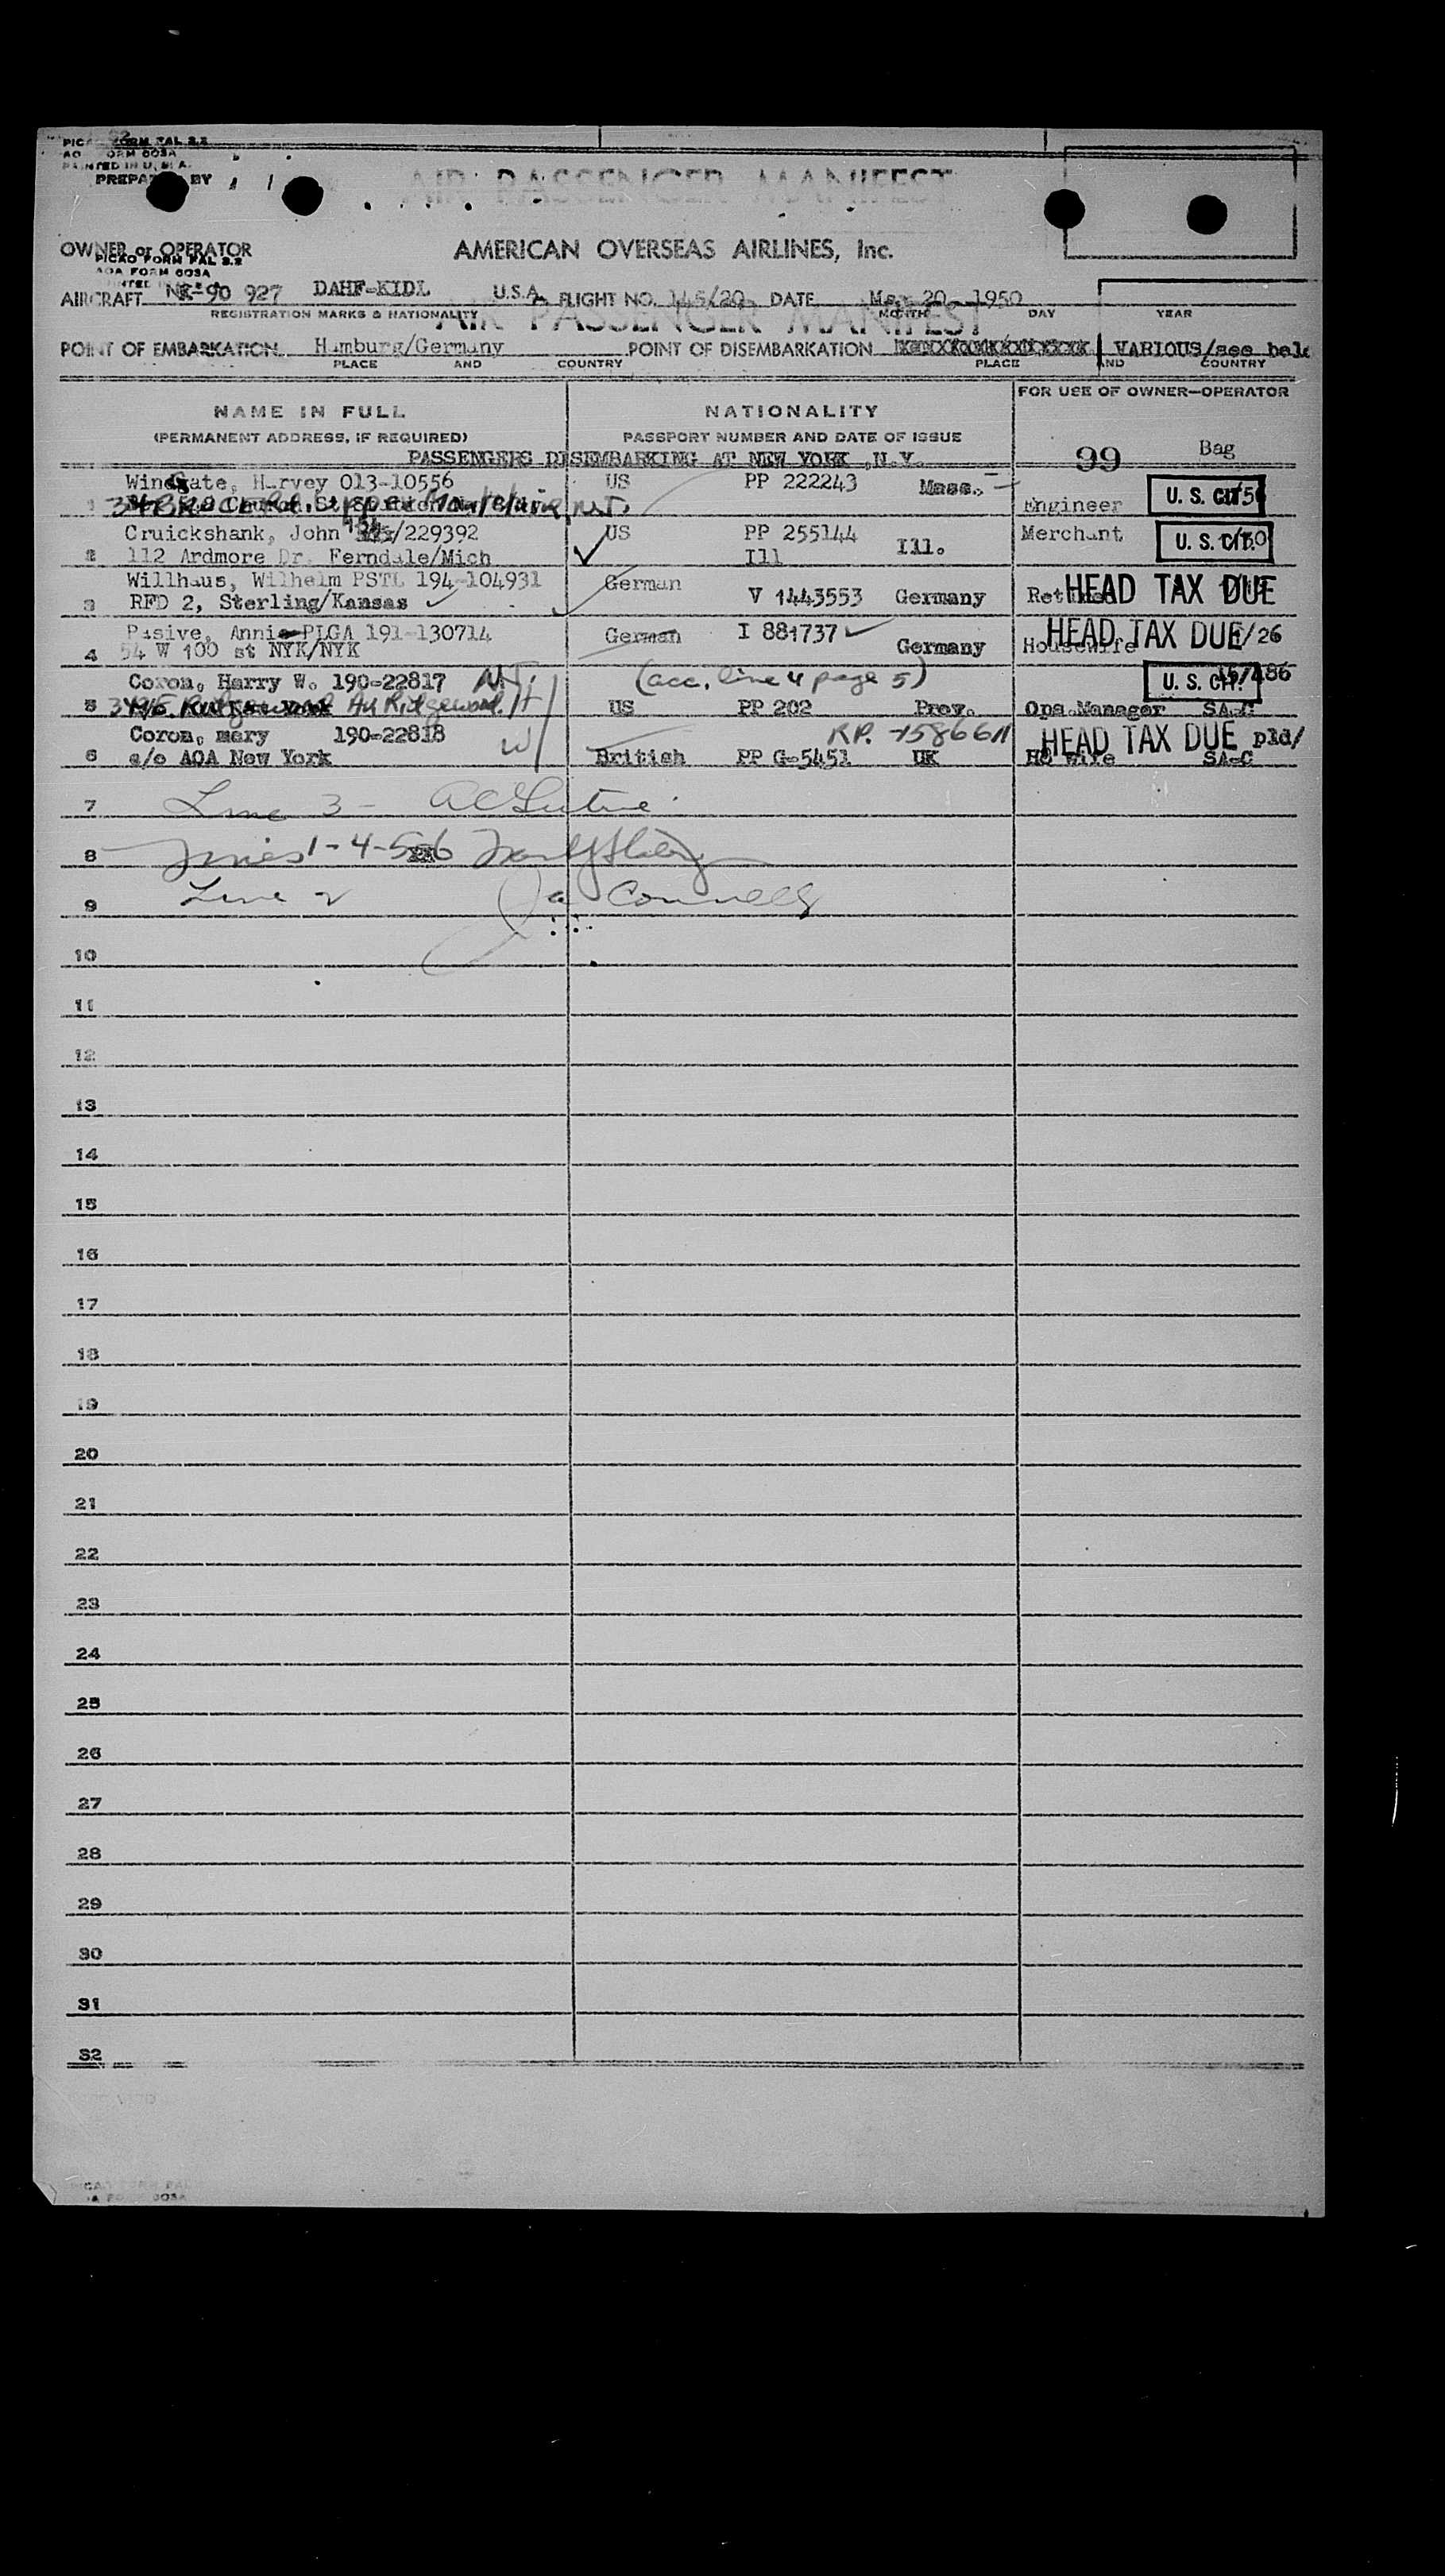 PICAO FORM PAL 2.2
AOA FORM 003A
PRINTED IN U. S. A.
PREPARED BY
AIR PASSENGER MANIFEST
OWNER or OPERATOR AMERICAN OVERSEAS AIRLINES, Inc.
PICAO FORM PAL 2.2
AOA FORM 003A
AIRCRAFT 90 927 DAHF-KIDL U.S.A. FLIGHT NO. 145/20 DATE Mar 20 1950
REGISTRATION MARKS & NATIONALITY MONTH DAY YEAR
AIR PASSENGER MANIFEST
POINT OF EMBARKATION Hamburg/Germany POINT OF DISEMBARKATION VARIOUS/see belo
PLACE AND COUNTRY PLACE AND COUNTRY
FOR USE OF OWNER—OPERATOR
NAME IN FULL NATIONALITY
(PERMANENT ADDRESS, IF REQUIRED) PASSPORT NUMBER AND DATE OF ISSUE
PASSENGERS DISEMBARKING AT NEW YORK ,N.Y. 99 Bag
Harvey 013-10556 US PP 222243 Mass.
1 Upper Montclair, N.J. Engineer U. S. CIT.
Cruickshank, John /229392 US PP 255144 Ill. Merchant U. S. CIT.
2 112 Ardmore Dr. Ferndale/Mich Ill
Willhaus, Wilhelm PSTL 194-104931 German
3 RFD 2, Sterling/Kansas V 1443553 Germany HEAD TAX DUE
Pasive, Annie PLGA 191-130714 German I 881737 HEAD TAX DUE /26
4 54 W 100 st NYK/NYK Germany Housewife
Coron, Harry W. 190-22817 N.J. (acc. line 4 page 5) U. S. CIT.
5 Ridgewood US PP 202 Prov. Ops.Manager SA-C
Coron, mary 190-22818 HEAD TAX DUE pld/
6 c/o AOA New York British PP G-5451 UK Ho wife SA-C
7 Line 3 -
8 1-4-5-6
9 Line 2
10
11
12
13
14
15
16
17
18
19
20
21
22
23
24
25
26
27
28
29
30
31
32